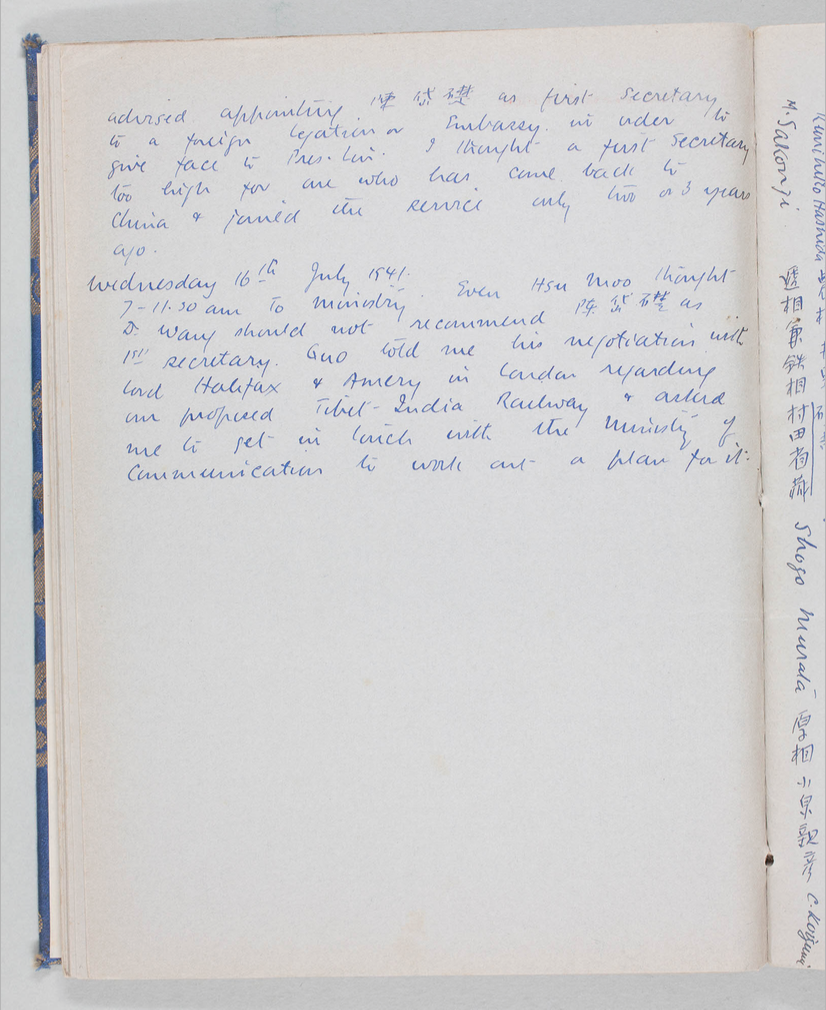 advised appointing 陳岱礎 as first Secretary
to a foreign legation or Embassy. in order to
give face to Pres. Lin. I thought a first Secretary
too high for one who has come back to
China & joined the service only two or 3 years
ago.
Wednesday 16th July 1941.
7-11.30 am To ministry. Even Hsu Moo thought
Dr Wang should not recommend 陳岱礎 as
1st secretary. Quo told me his negotiation with
Lord Halifax & Amery in London regarding
our proposed Tibet-India Railway & asked
me to get in touch with the Ministry of
Communication to work out a plan for it.
Kunihiko Hashida 農相
M. Sakonji 逓相兼鉄相村田省蔵 Shogo Murata 厚相小泉親彦 C. Koizumi